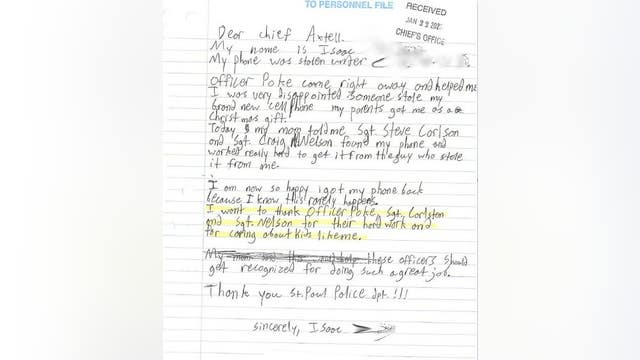 TO PERSONNEL FILE
RECEIVED
JAN 22 202
CHIEF'S OFFICE
Dear Chief Axtell.
My name is Isaac
My phone was stolen
Officer Poke came right away and helped me
I was very disappointed someone stole my
brand new cell phone my parents got me as a
Christmas gift.
Today my mom told me Sgt. Steve Corlson
and Sgt. Craig Nelson found my phone and
worked really hard to get it from the guy who stole
it from me.
I am now so happy i got my phone back
because I know this rarely happens.
I want to thank Officer Poke, Sgt. Corlston
and Sgt. Nelson for their hard work and
for caring about kids like me.
My these officers should
get recognized for doing such a great job.
Thank you St. Paul Police dpt. !!!
sincerely, Isaac